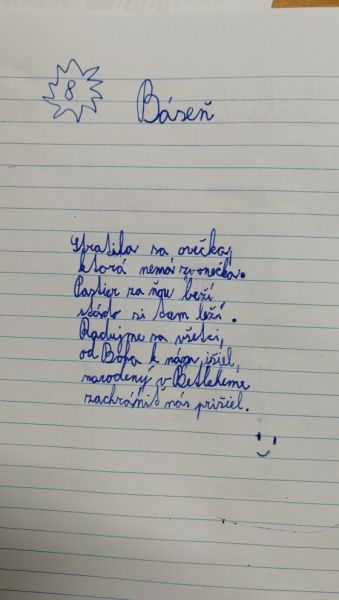 8
Báseň
Stratila sa ovečka,
ktorá nemá zvonečka.
Pastier za ňou beží
stádo si tam leží.
Radujme sa všetci,
od Boha k nám išiel,
narodený v Betleheme
zachrániť nás prišiel.